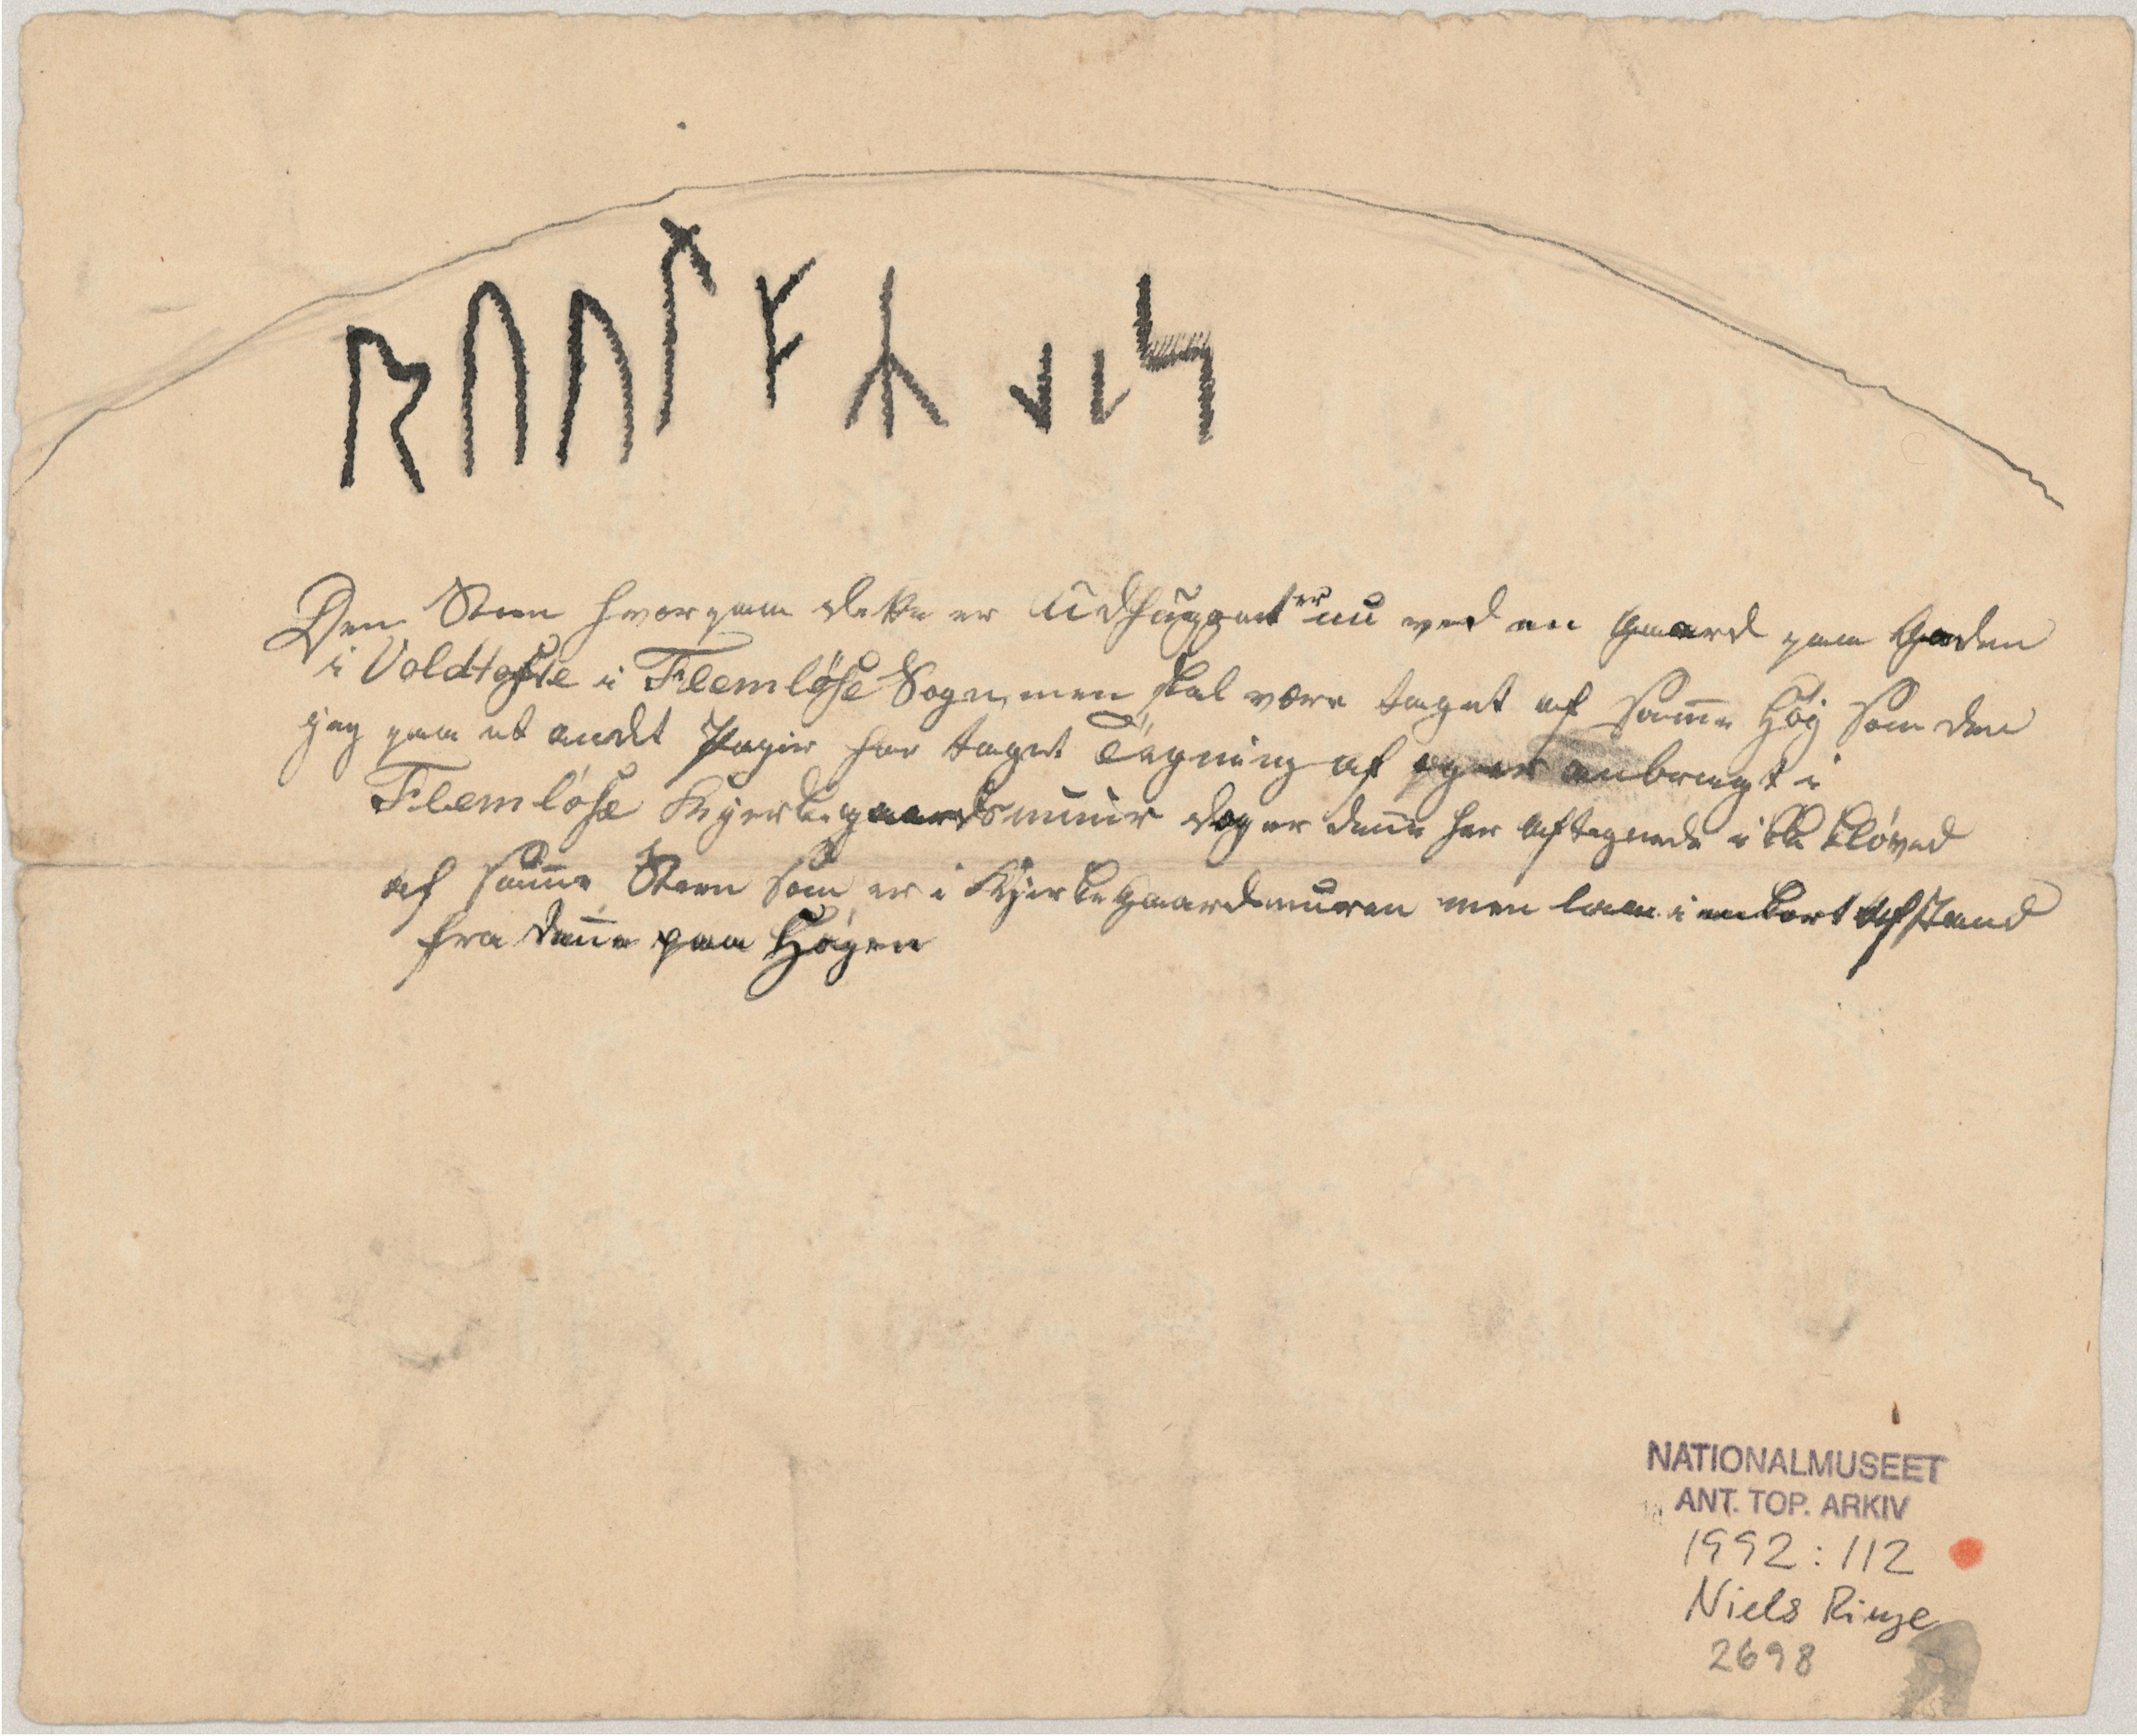 ᚱᚢᚢᛚᚠᛦᛋᛁᛋ
Den Steen hvorpaa dette er Udhugget er nu ved en Gaard paa Gaden
i Voldtofte i Flemløse Sogn, men skal være taget af samme Høj som den
jeg paa et andet Papir har taget Tegning af og er anbragt i
Flemløse Kjerkegaardsmuur dog er denne her Aftegnede ikke kløved
af samme Steen som er i Kjerkegaardsmuren men laae i en kort Afstand
fra denne paa Højen
NATIONALMUSEET
ANT. TOP. ARKIV
1992:112
Niels Ringe
2698